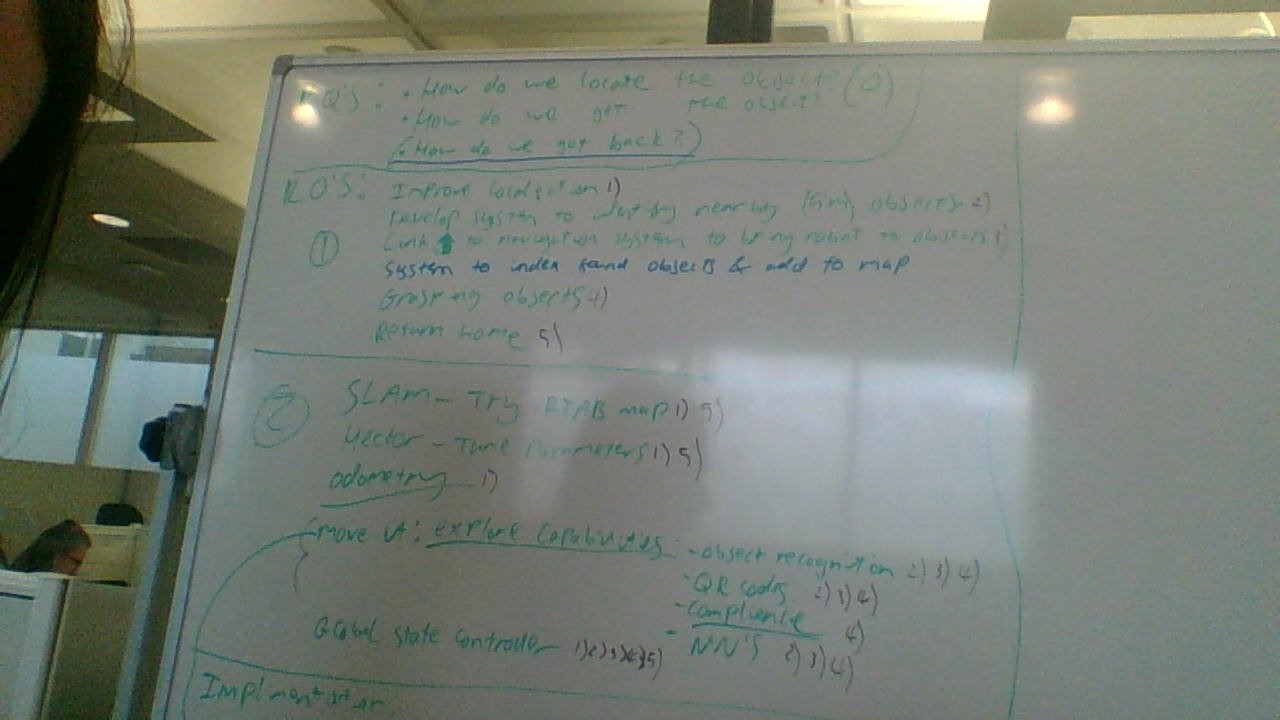 RQ'S: • How do we locate the object? (0)
• How do we get the object?
(• How do we get back?)
RO'S: Improve localisation 1)
Develop system to identify nearby (5m) objects 2)
① Link ⬆ to navigation system to bring robot to objects 3)
system to index found objects & add to map
Grasping objects 4)
Return home 5)
② SLAM - Try RTAB map 1) 5)
Hector - Tune Parameters 1) 5)
odometry 1)
move it: explore capabilities - object recognition 2) 3) 4)
- QR codes 2) 3) 4)
- compliance 4)
Global state controller 1) 2) 3) 4) 5) - NN'S 2) 3) 4)